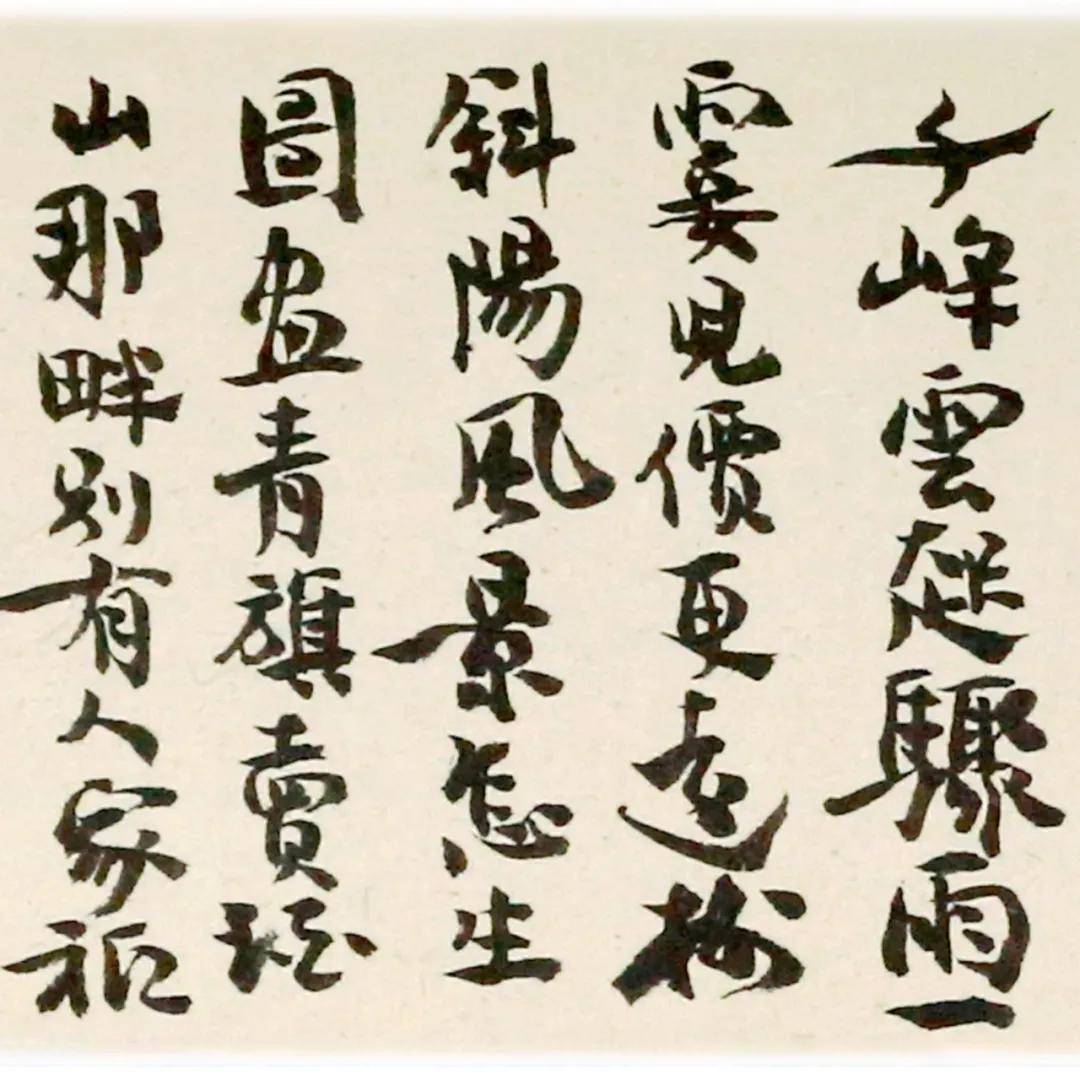 千峰雲起驟雨一
霎兒價更遠樹
斜陽風景怎生
圖畫青旗賣酒
山那畔別有人家祇